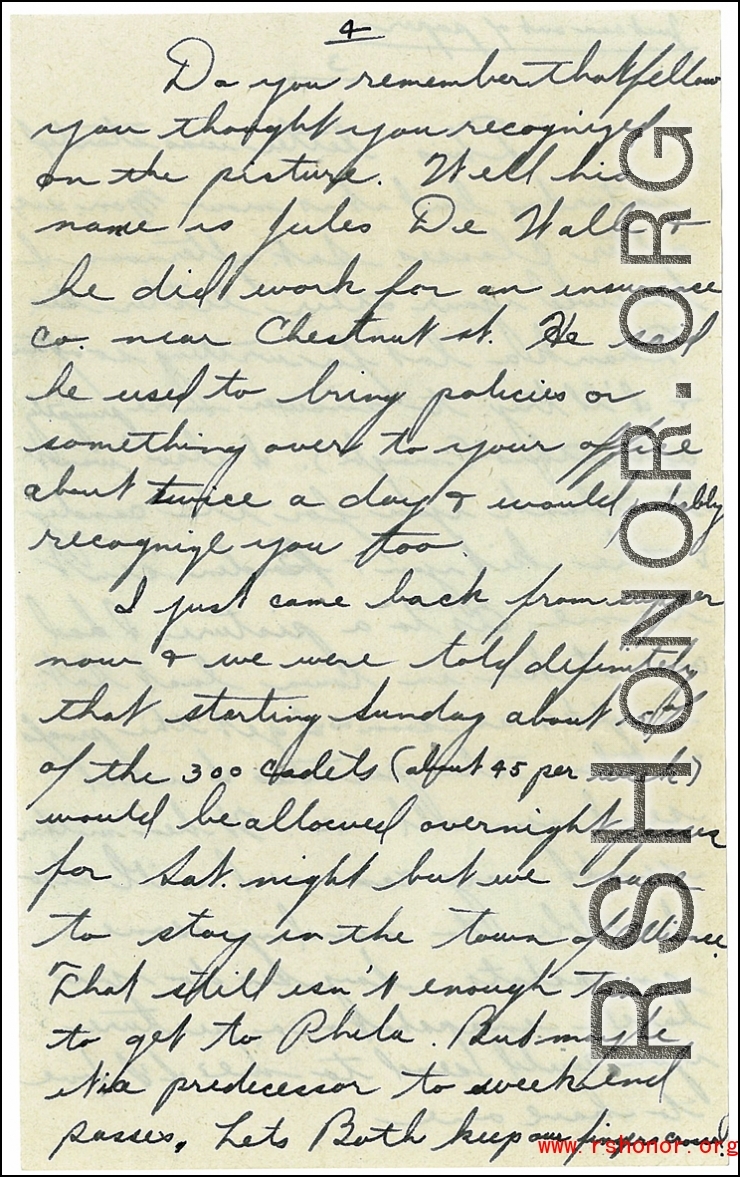 4
Do you remember that fellow
you thought you recognized
on the picture. Well his
name is Jules De Walle &
he did work for an insurance
co. near Chestnut st. He said
he used to bring policies or
something over to your office
about twice a day & would probably
recognize you too.
I just came back from supper
now & we were told definitely
that starting Sunday about
of the 300 cadets (about 45 per week)
would be allowed overnight passes
for Sat. night but we have
to stay in the town of Alliance.
That still isn't enough time
to get to Phila. But maybe
its a predecessor to weekend
passes. Lets Both keep our fingers crossed.
RSHONOR.ORG
www.rshonor.org